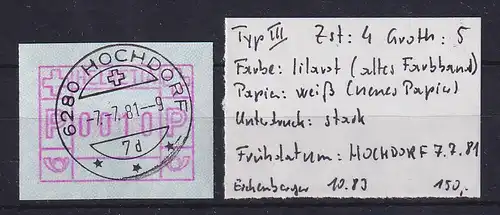 6280 HOCHDORF
-7.-7.81--9
7d
0010
Typ III Zst: 4 Groth: 5
Farbe: lilarot (altes Farbband)
Papier: weiß (neues Papier)
Unterdruck: stark
Frühdatum: HOCHDORF 7.7.81
Eschenberger 10.83 150,-